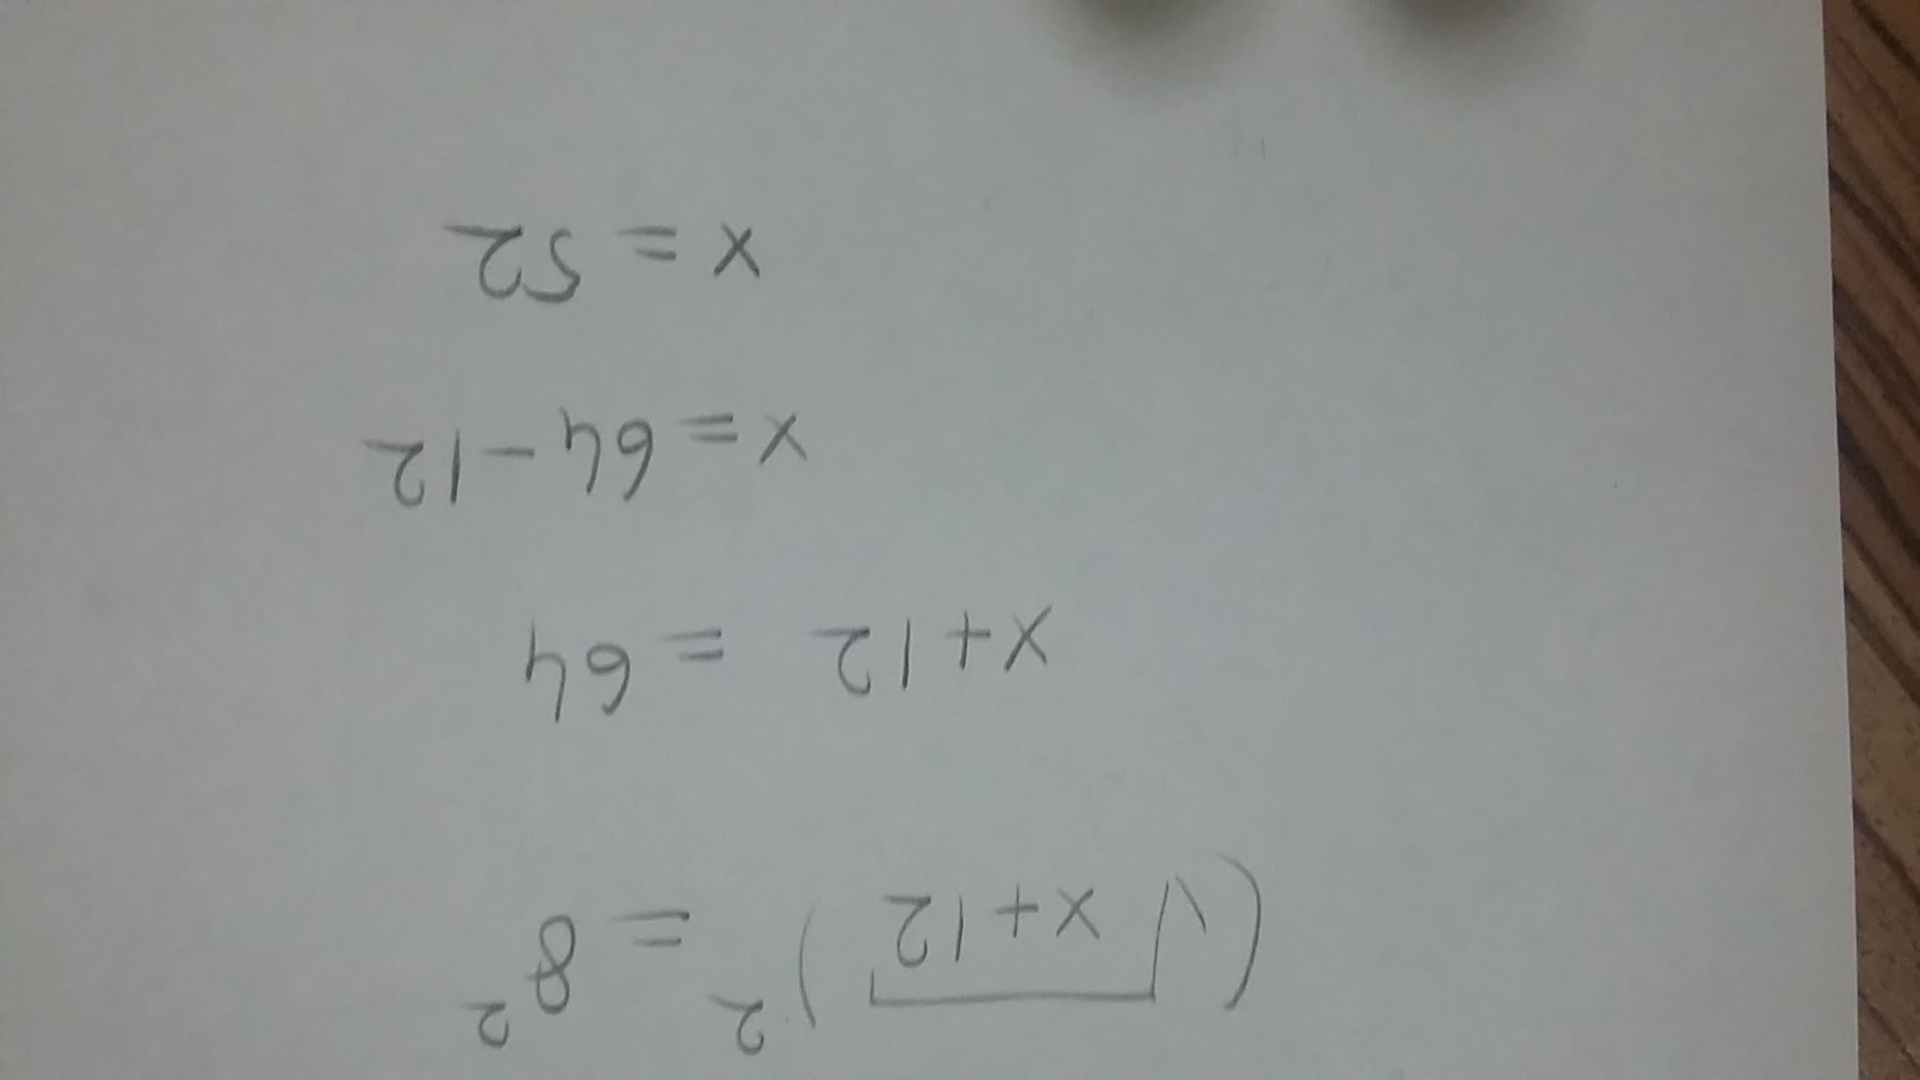 (√x+12)² = 8²
x+12 = 64
x = 64 - 12
x = 52